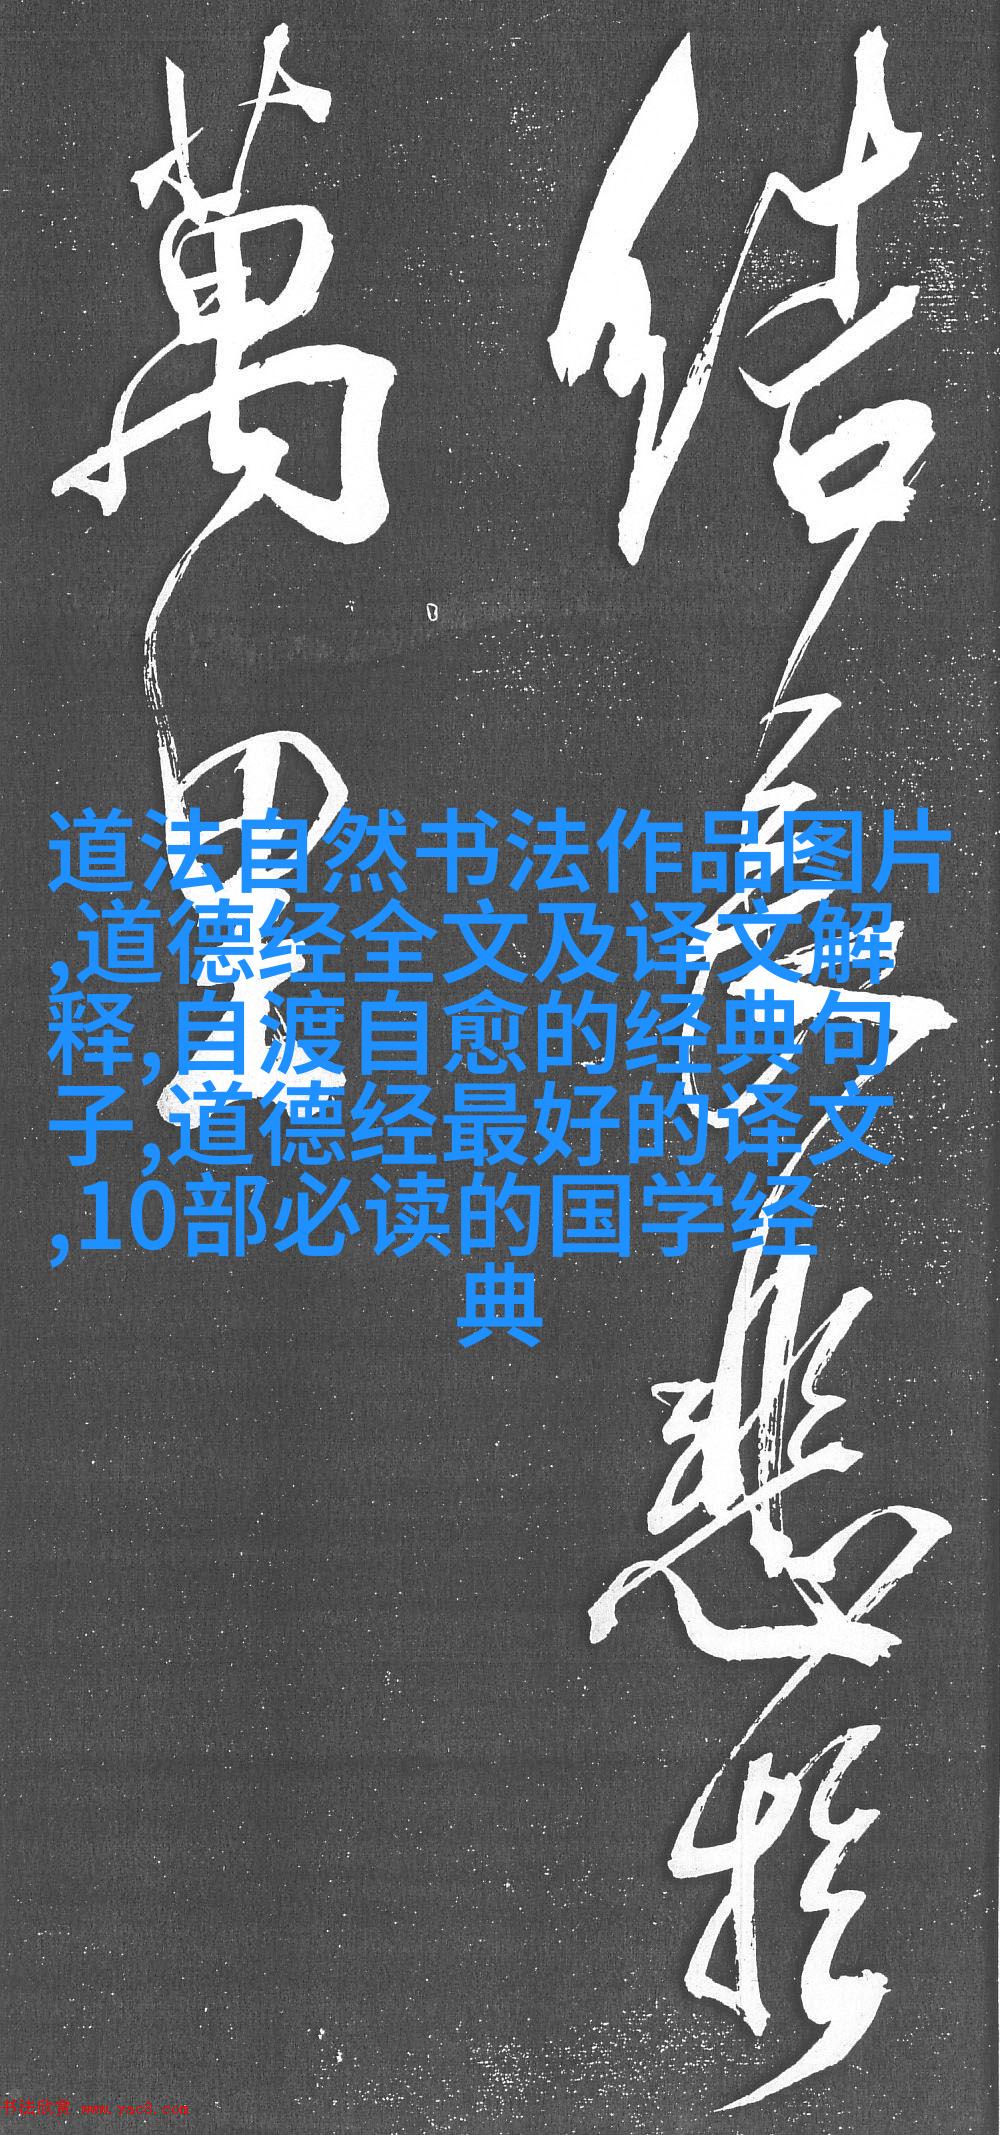 結長悲於
萬里
道法自然书法作品图片
,道德经全文及译文解
释,自渡自愈的经典句
子,道德经最好的译文
,10部必读的国学经
典
书法欣赏 www.yac8.com